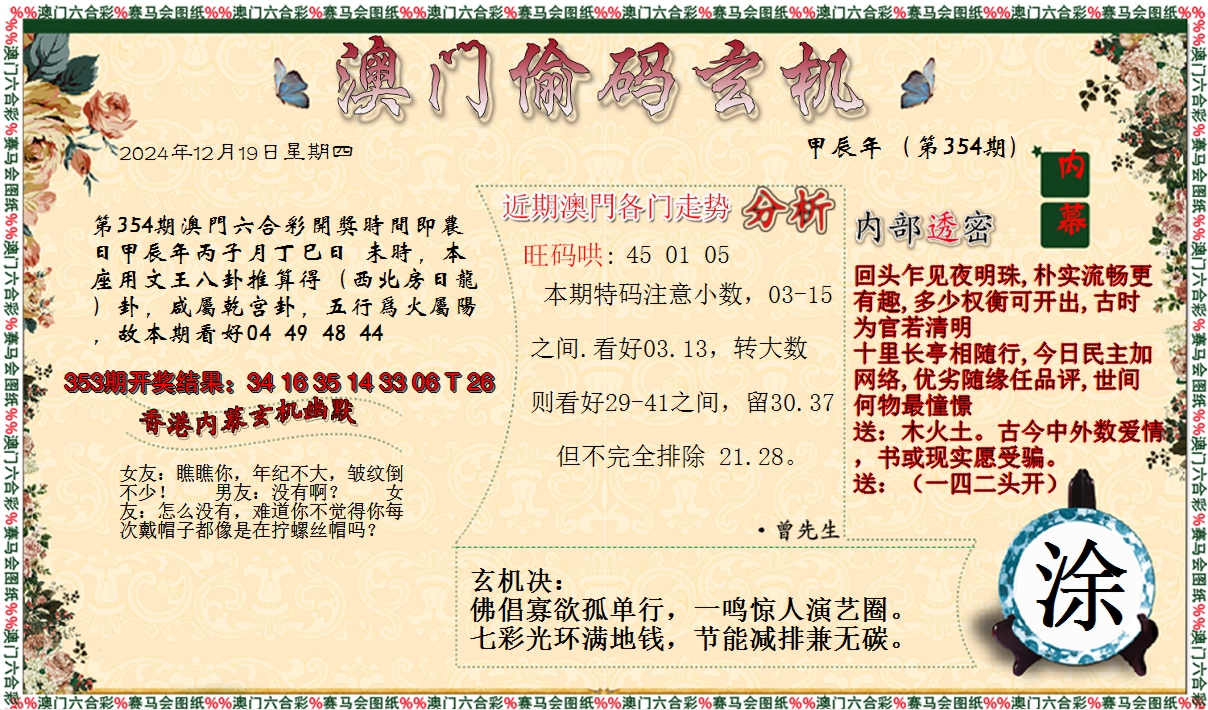 %%澳门六合彩%赛马会图纸%%澳门六合彩%赛马会图纸%%澳门六合彩%赛马会图纸%%澳门六合彩%赛马会图纸%%澳门六合彩%赛马会图纸%%澳门六合彩%赛马会图纸%%
澳门偷码玄机
2024年12月19日星期四
甲辰年（第354期）
内
幕
第354期澳門六合彩開獎時間即農
日甲辰年丙子月丁巳日 未時，本
座用文王八卦推算得（西北房日龍
）卦，咸屬乾宫卦，五行爲火屬陽
，故本期看好04 49 48 44
353期开奖结果：34 16 35 14 33 06 T 26
香港内幕玄机幽默
女友：瞧瞧你，年纪不大，皱纹倒
不少！ 男友：没有啊？ 女
友：怎么没有，难道你不觉得你每
次戴帽子都像是在拧螺丝帽吗？
近期澳門各门走势 分析
旺码哄: 45 01 05
本期特码注意小数，03-15
之间.看好03.13，转大数
则看好29-41之间，留30.37
但不完全排除 21.28。
·曾先生
内部透密
回头乍见夜明珠,朴实流畅更
有趣,多少权衡可开出,古时
为官若清明
十里长亭相随行,今日民主加
网络,优劣随缘任品评,世间
何物最憧憬
送：木火土。古今中外数爱情
，书或现实愿受骗。
送：（一四二头开）
玄机决：
佛倡寡欲孤单行，一鸣惊人演艺圈。
七彩光环满地钱，节能减排兼无碳。
涂
%%澳门六合彩%赛马会图纸%%澳门六合彩%赛马会图纸%%澳门六合彩%赛马会图纸%%澳门六合彩%赛马会图纸%%澳门六合彩%赛马会图纸%%澳门六合彩%赛马会图纸%%